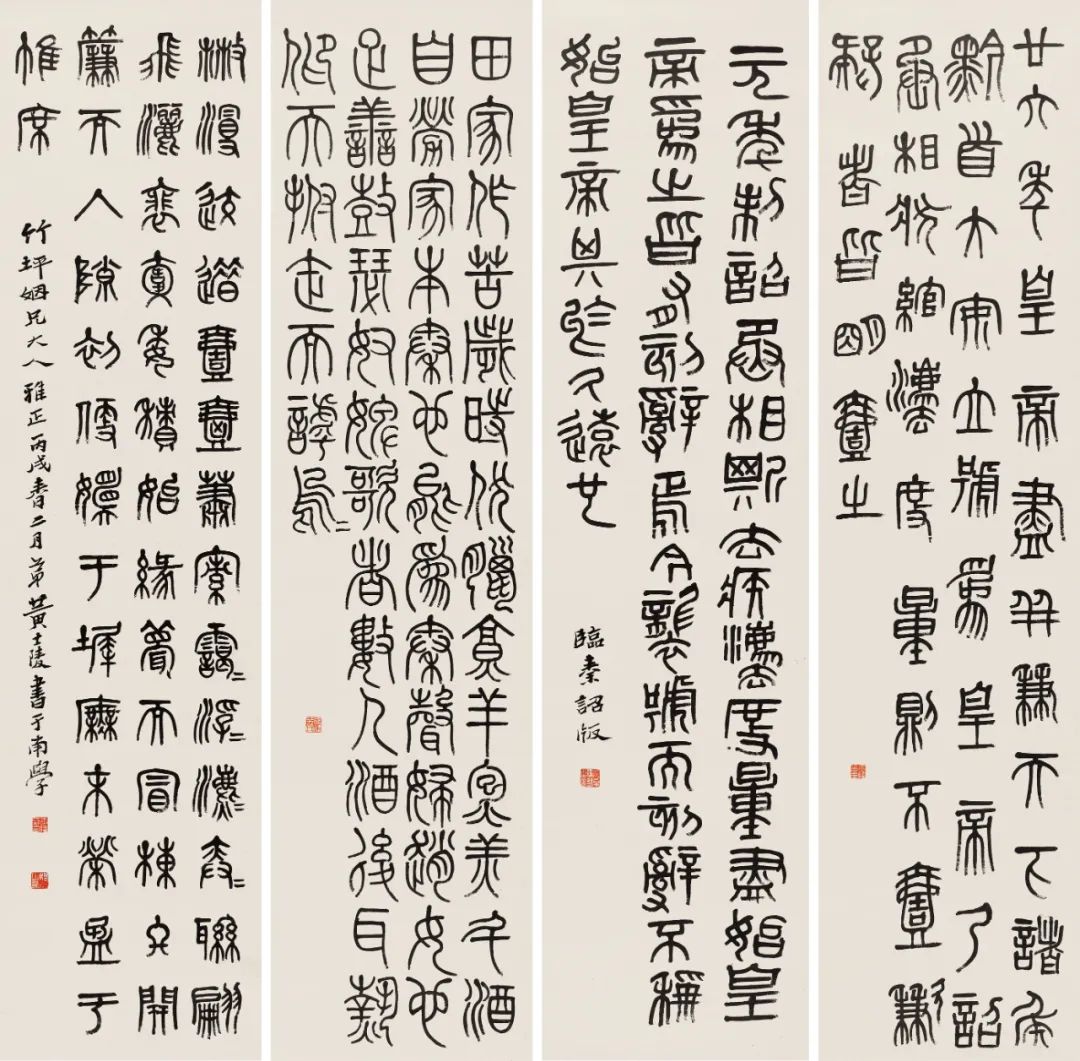 廿六年皇帝盡并兼天下諸矦
黔首大安立號爲皇帝乃詔
丞相狀綰灋度量則不壹歉
疑者皆明壹之
元年制詔丞相斯去疾灋度量盡始皇
帝爲之皆有刻辭焉今襲號而刻辭不稱
始皇帝其於久遠也
臨秦詔版
田家作苦歲時伏臘亯羊炰羔斗酒
自勞家本秦也能爲秦聲婦趙女也
疋善鼓瑟奴婢歌者數人酒後耳熱
仰天拊缶而謼烏〻
㪔漫迒逪壹壺蕭索靄〻浮〻瀌〻弈〻聯翩
飛灑裵回委積始緣甍而冒棟夂開
簾而入隙初便嬛于墀廡末縈盈于
帷席
竹坪姻兄大人雅正丙戌春二月弟黃士陵書于南學